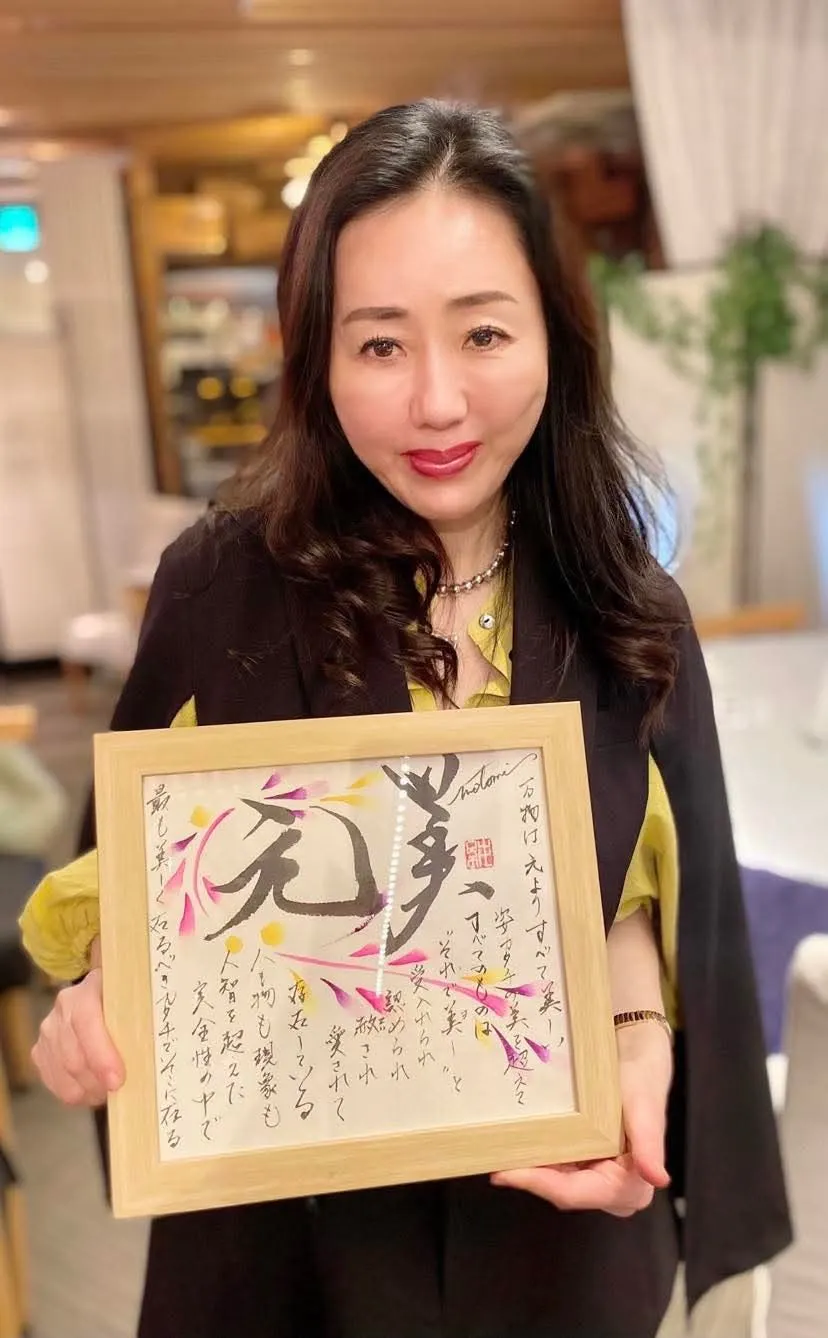 美元
notomi
万物は元よりすべて美しい
姿カタチの美を超えて
すべてのものは
“それで美し”と
受入れられ
認められ
赦され
愛されて
存在している
人も物も現象も
人智を超えた
完全性の中で
最も美しく在るべきカタチでそこに在る